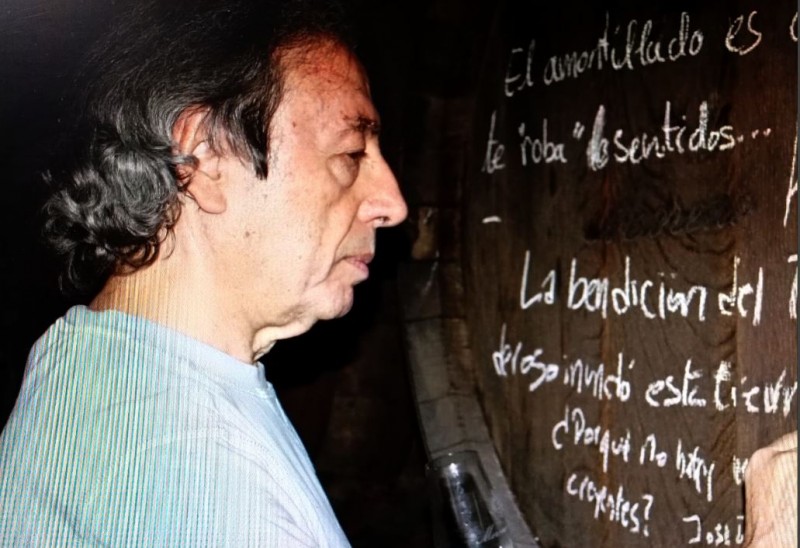 El amontillado es
te "roba" los sentidos...
La bendición del
deroso inundó esta tierra
¿Porqué no hay
creyentes? José